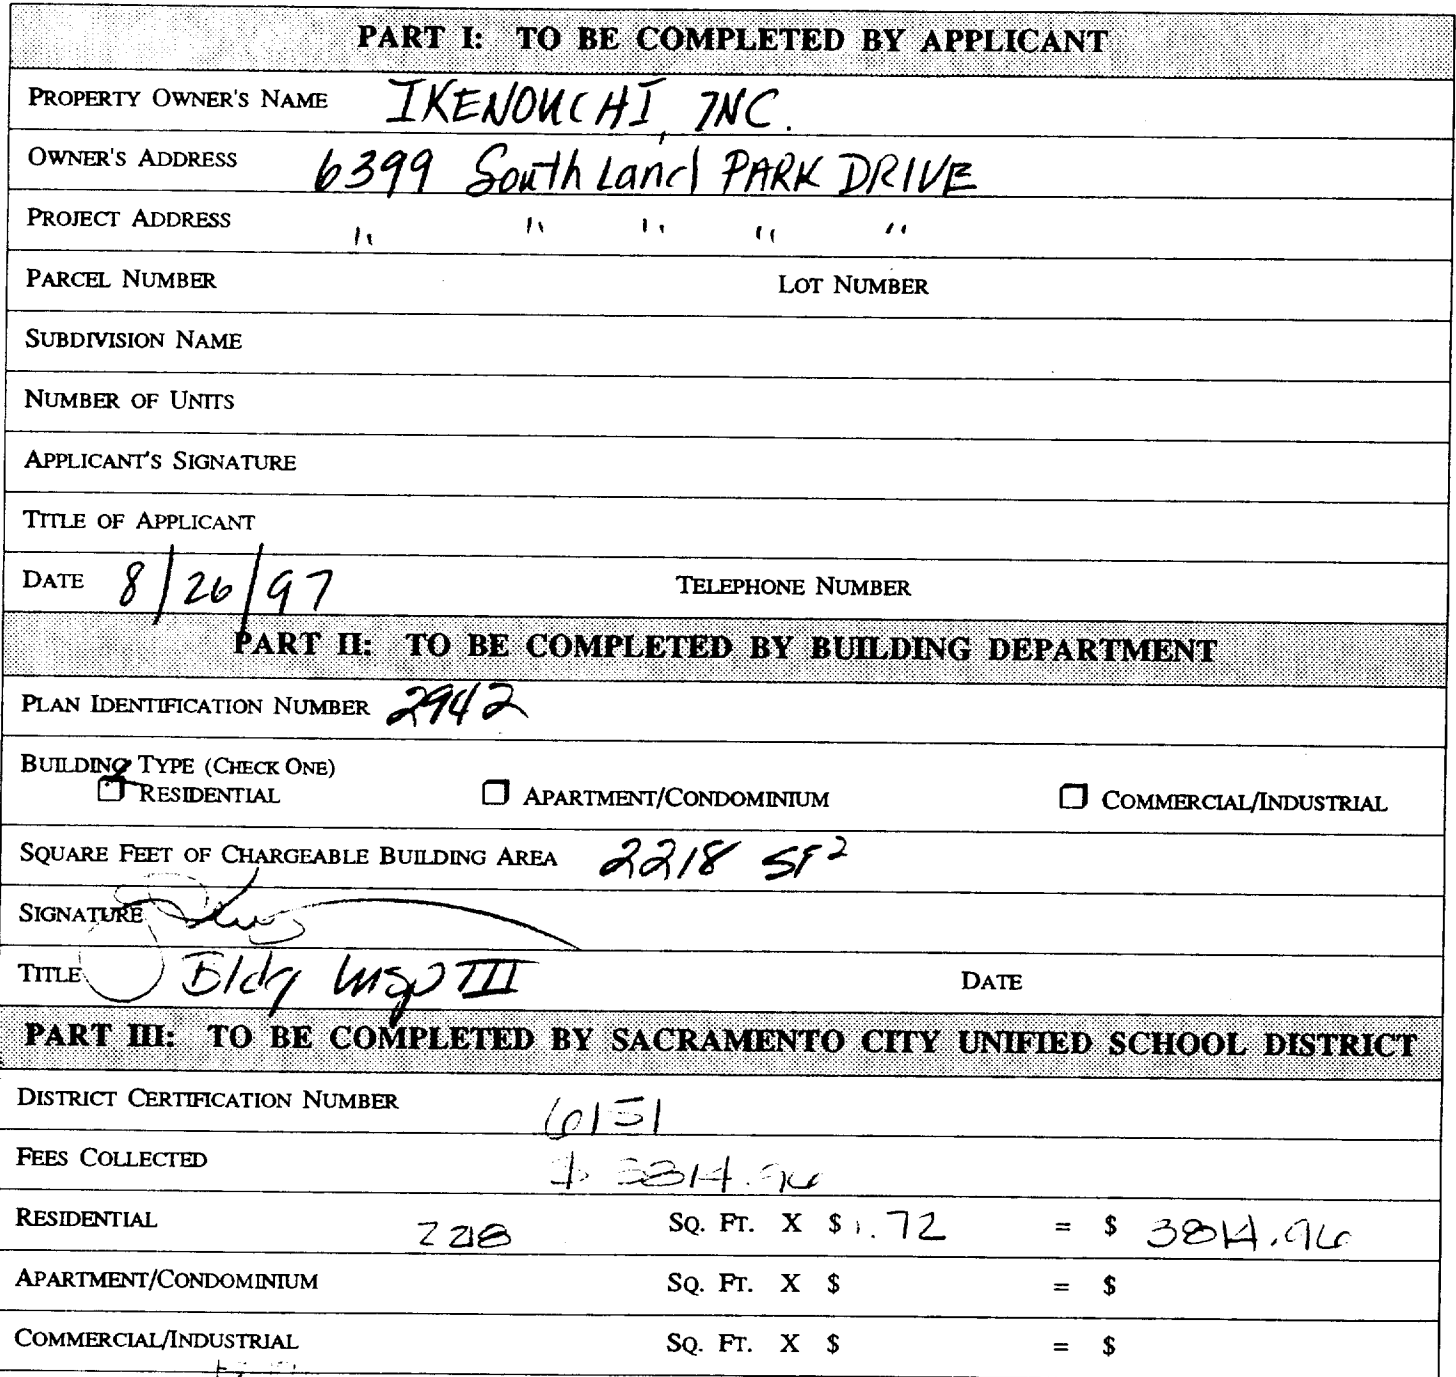 PART I: TO BE COMPLETED BY APPLICANT
PROPERTY OWNER'S NAME IKENOUCHI, INC.
OWNER'S ADDRESS 6399 South Land PARK DRIVE
PROJECT ADDRESS " " " " "
PARCEL NUMBER LOT NUMBER
SUBDIVISION NAME
NUMBER OF UNITS
APPLICANT'S SIGNATURE
TITLE OF APPLICANT
DATE 8/26/97 TELEPHONE NUMBER
PART II: TO BE COMPLETED BY BUILDING DEPARTMENT
PLAN IDENTIFICATION NUMBER 2942
BUILDING TYPE (CHECK ONE)
RESIDENTIAL APARTMENT/CONDOMINIUM COMMERCIAL/INDUSTRIAL
SQUARE FEET OF CHARGEABLE BUILDING AREA 2218 SF²
SIGNATURE
TITLE Bldg Insp III DATE
PART III: TO BE COMPLETED BY SACRAMENTO CITY UNIFIED SCHOOL DISTRICT
DISTRICT CERTIFICATION NUMBER 6151
FEES COLLECTED $ 3814.96
RESIDENTIAL 2218 SQ. FT. X $ 1.72 = $ 3814.96
APARTMENT/CONDOMINIUM SQ. FT. X $ = $
COMMERCIAL/INDUSTRIAL SQ. FT. X $ = $